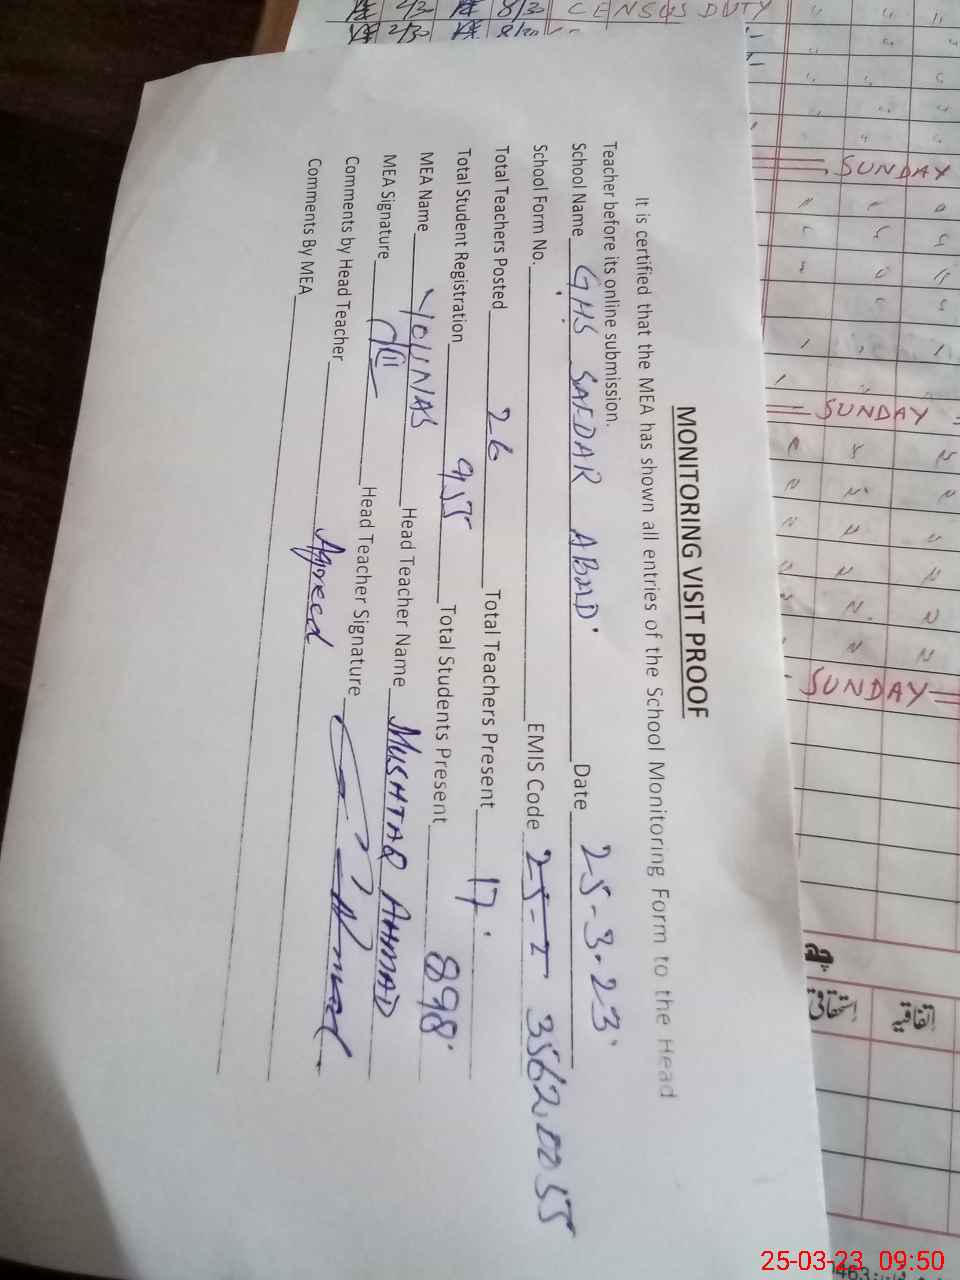 MONITORING VISIT PROOF
It is certified that the MEA has shown all entries of the School Monitoring Form to the Head
Teacher before its online submission.
School Name GHS SAFDAR ABAD Date 25-3-23
School Form No. EMIS Code 35620055
Total Teachers Posted 26 Total Teachers Present 17
Total Student Registration 955 Total Students Present 898
MEA Name YOUNAS Head Teacher Name MUSHTAQ AHMAD
MEA Signature Head Teacher Signature
Comments by Head Teacher Agreed
Comments By MEA
2/30 8/30 CENSUS DUTY
2/30
SUNDAY
SUNDAY
SUNDAY
اتفاقیہ استحقاقی
25-03-23 09:50